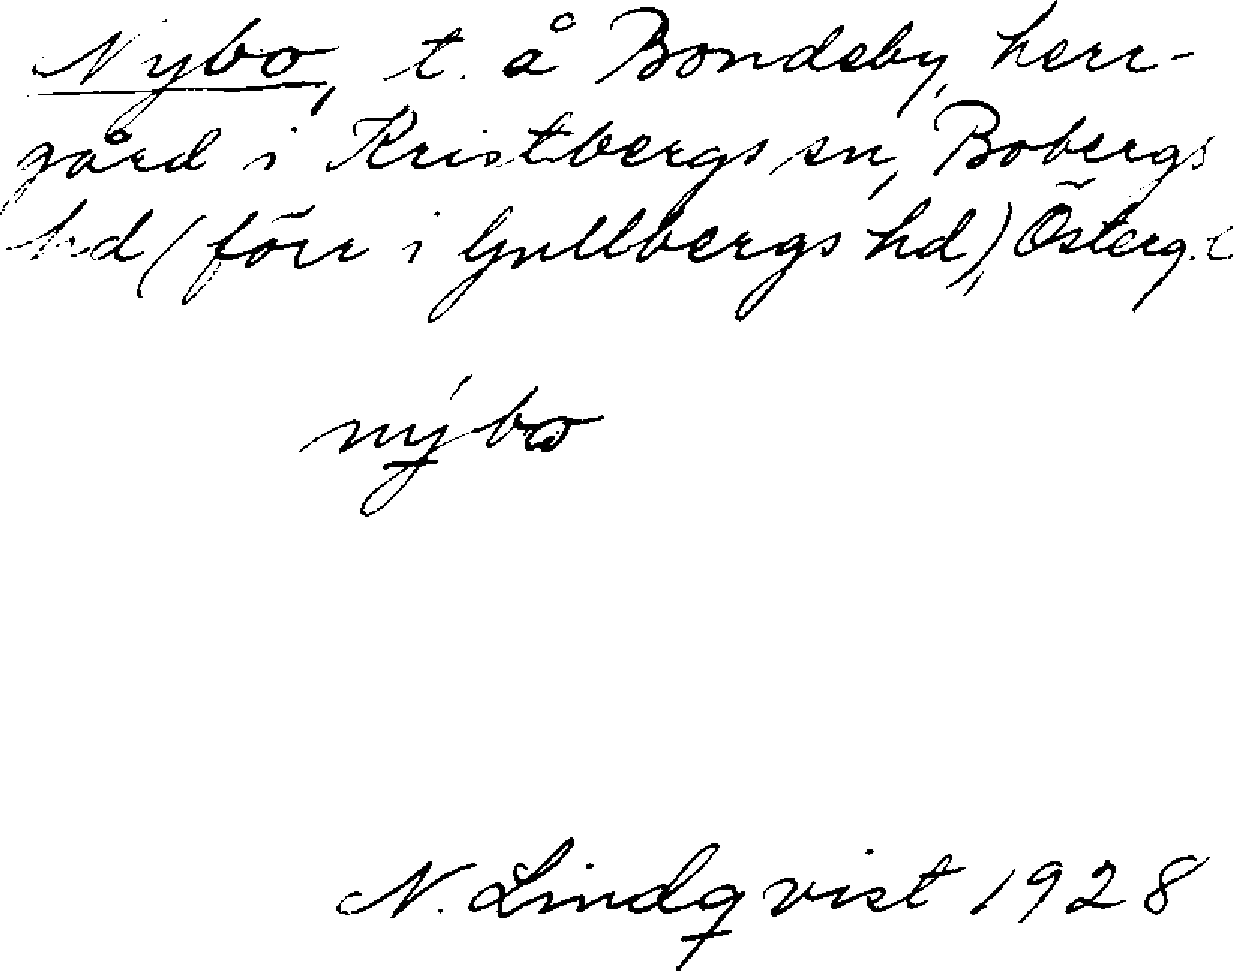 Nybo, t. å Bondeby, herr-
gård i Kristbergs sn, Bobergs
hd (förr i Gullbergs hd), Österg.l
nýbω
N. Lindqvist 1928